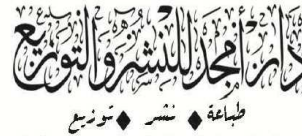 دار امجد للنشر والتوزيع
طباعة ♦ نشر ♦ توزيع